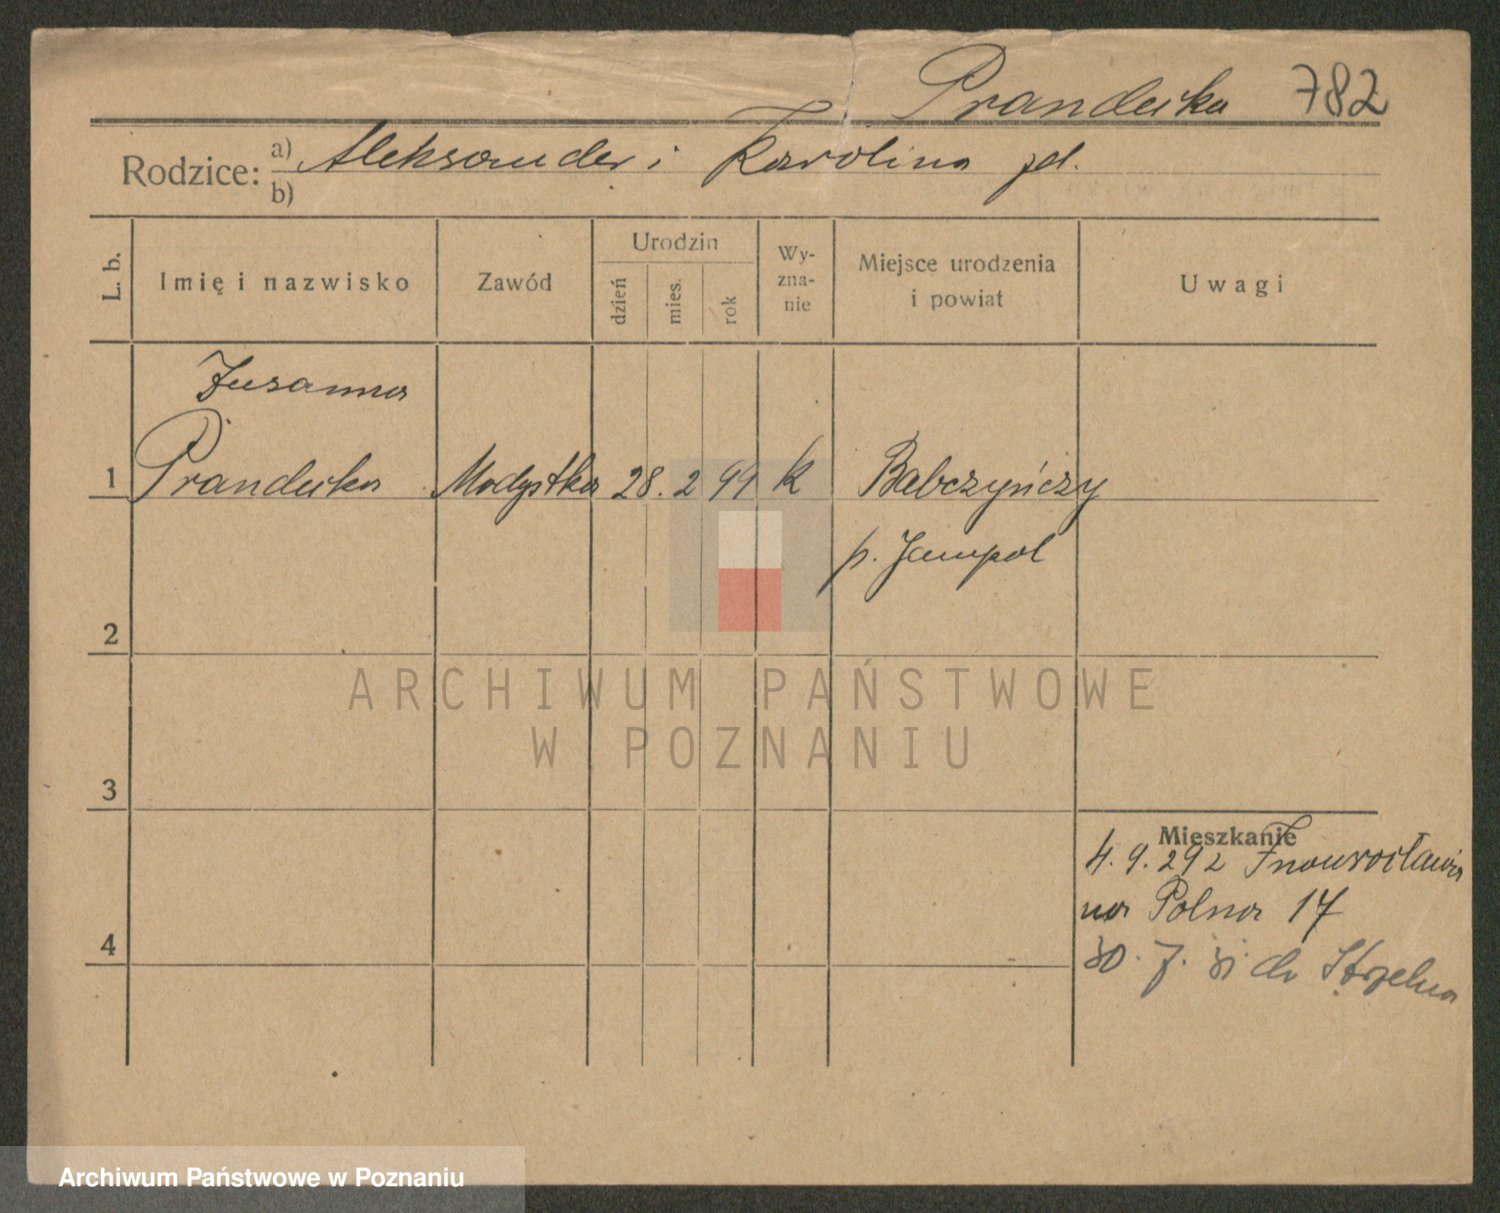 Prandecka 782
Rodzice: a) Aleksander i Karolina jd.
b)
L. b. Imię i nazwisko Zawód Urodzin dzień mies. rok Wyznanie Miejsce urodzenia i powiat Uwagi
Zusanna
1 Prandecka Modystka 28. 2 99 k Babczyńczy
p. Jampol
2
3
Mieszkanie
4. 9. 29 z Inowrocławia
na Polna 17
4
30. 7. 31 do Strzelna
ARCHIWUM PAŃSTWOWE
W POZNANIU
Archiwum Państwowe w Poznaniu